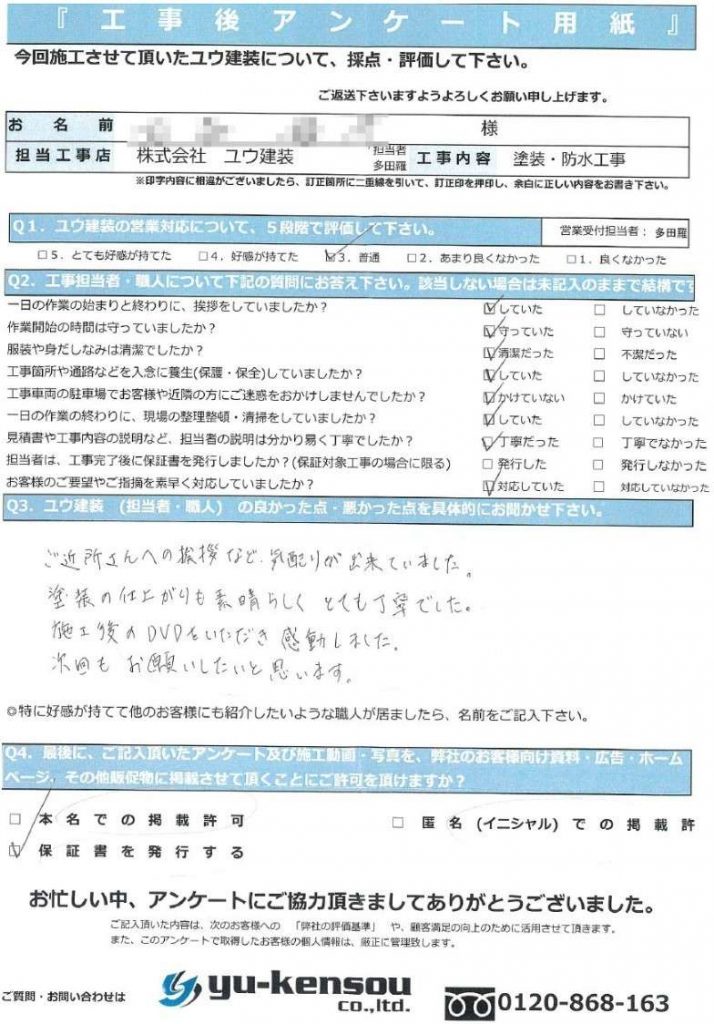 『工事後アンケート用紙』
今回施工させて頂いたユウ建装について、採点・評価して下さい。
ご返送下さいますようよろしくお願い申し上げます。
お名前 様
担当工事店 株式会社 ユウ建装 担当者 多田羅 工事内容 塗装・防水工事
※印字内容に相違がございましたら、訂正箇所に二重線を引いて、訂正印を押印し、余白に正しい内容をお書き下さい。
Q1. ユウ建装の営業対応について、5段階で評価して下さい。 営業受付担当者：多田羅
□5．とても好感が持てた □4．好感が持てた ☑3．普通 □2．あまり良くなかった □1．良くなかった
Q2．工事担当者・職人について下記の質問にお答え下さい。該当しない場合は未記入のままで結構です
一日の作業の始まりと終わりに、挨拶をしていましたか？ ☑していた □ していなかった
作業開始の時間は守っていましたか？ ☑守っていた □ 守っていない
服装や身だしなみは清潔でしたか？ ☑清潔だった □ 不潔だった
工事箇所や通路などを入念に養生(保護・保全)していましたか？ ☑していた □ していなかった
工事車両の駐車場でお客様や近隣の方にご迷惑をおかけしませんでしたか？ ☑かけていない □ かけていた
一日の作業の終わりに、現場の整理整頓・清掃をしていましたか？ ☑していた □ していなかった
見積書や工事内容の説明など、担当者の説明は分かり易く丁寧でしたか？ ☑丁寧だった □ 丁寧でなかった
担当者は、工事完了後に保証書を発行しましたか？(保証対象工事の場合に限る) □発行した □ 発行しなかった
お客様のご要望やご指摘を素早く対応していましたか？ ☑対応していた □ 対応していなかった
Q3．ユウ建装 (担当者・職人) の良かった点・悪かった点を具体的にお聞かせ下さい。
ご近所さんへの挨拶など、気配りが出来ていました。
塗装の仕上がりも素晴らしく とても丁寧でした。
施工後のDVDをいただき感動しました。
次回もお願いしたいと思います。
◎特に好感が持てて他のお客様にも紹介したいような職人が居ましたら、名前をご記入下さい。
Q4．最後に、ご記入頂いたアンケート及び施工動画・写真を、弊社のお客様向け資料・広告・ホーム
ページ、その他販促物に掲載させて頂くことにご許可を頂けますか？
□ 本名での掲載許可 □ 匿名(イニシャル)での掲載許
☑ 保証書を発行する
お忙しい中、アンケートにご協力頂きましてありがとうございました。
ご記入頂いた内容は、次のお客様への 「弊社の評価基準」 や、顧客満足の向上のために活用させて頂きます。
また、このアンケートで取得したお客様の個人情報は、厳正に管理致します。
ご質問・お問い合わせは yu-kensou co.,ltd. 0120-868-163